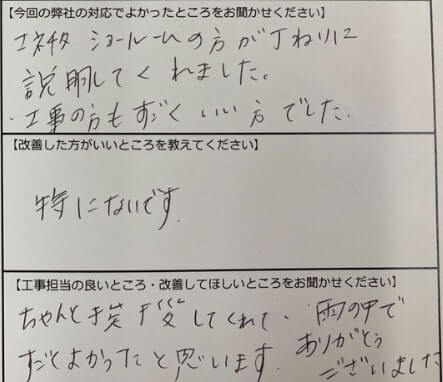 【今回の弊社の対応でよかったところをお聞かせください】
エネチタ ショールームの方が丁ねいに
説明してくれました。
・工事の方もすごくいい方でした。
【改善した方がいいところを教えてください】
特にないです。
【工事担当の良いところ・改善してほしいところをお聞かせください】
ちゃんと挨拶してくれて、雨の中で
すごくよかったと思います。ありがとう
ございました